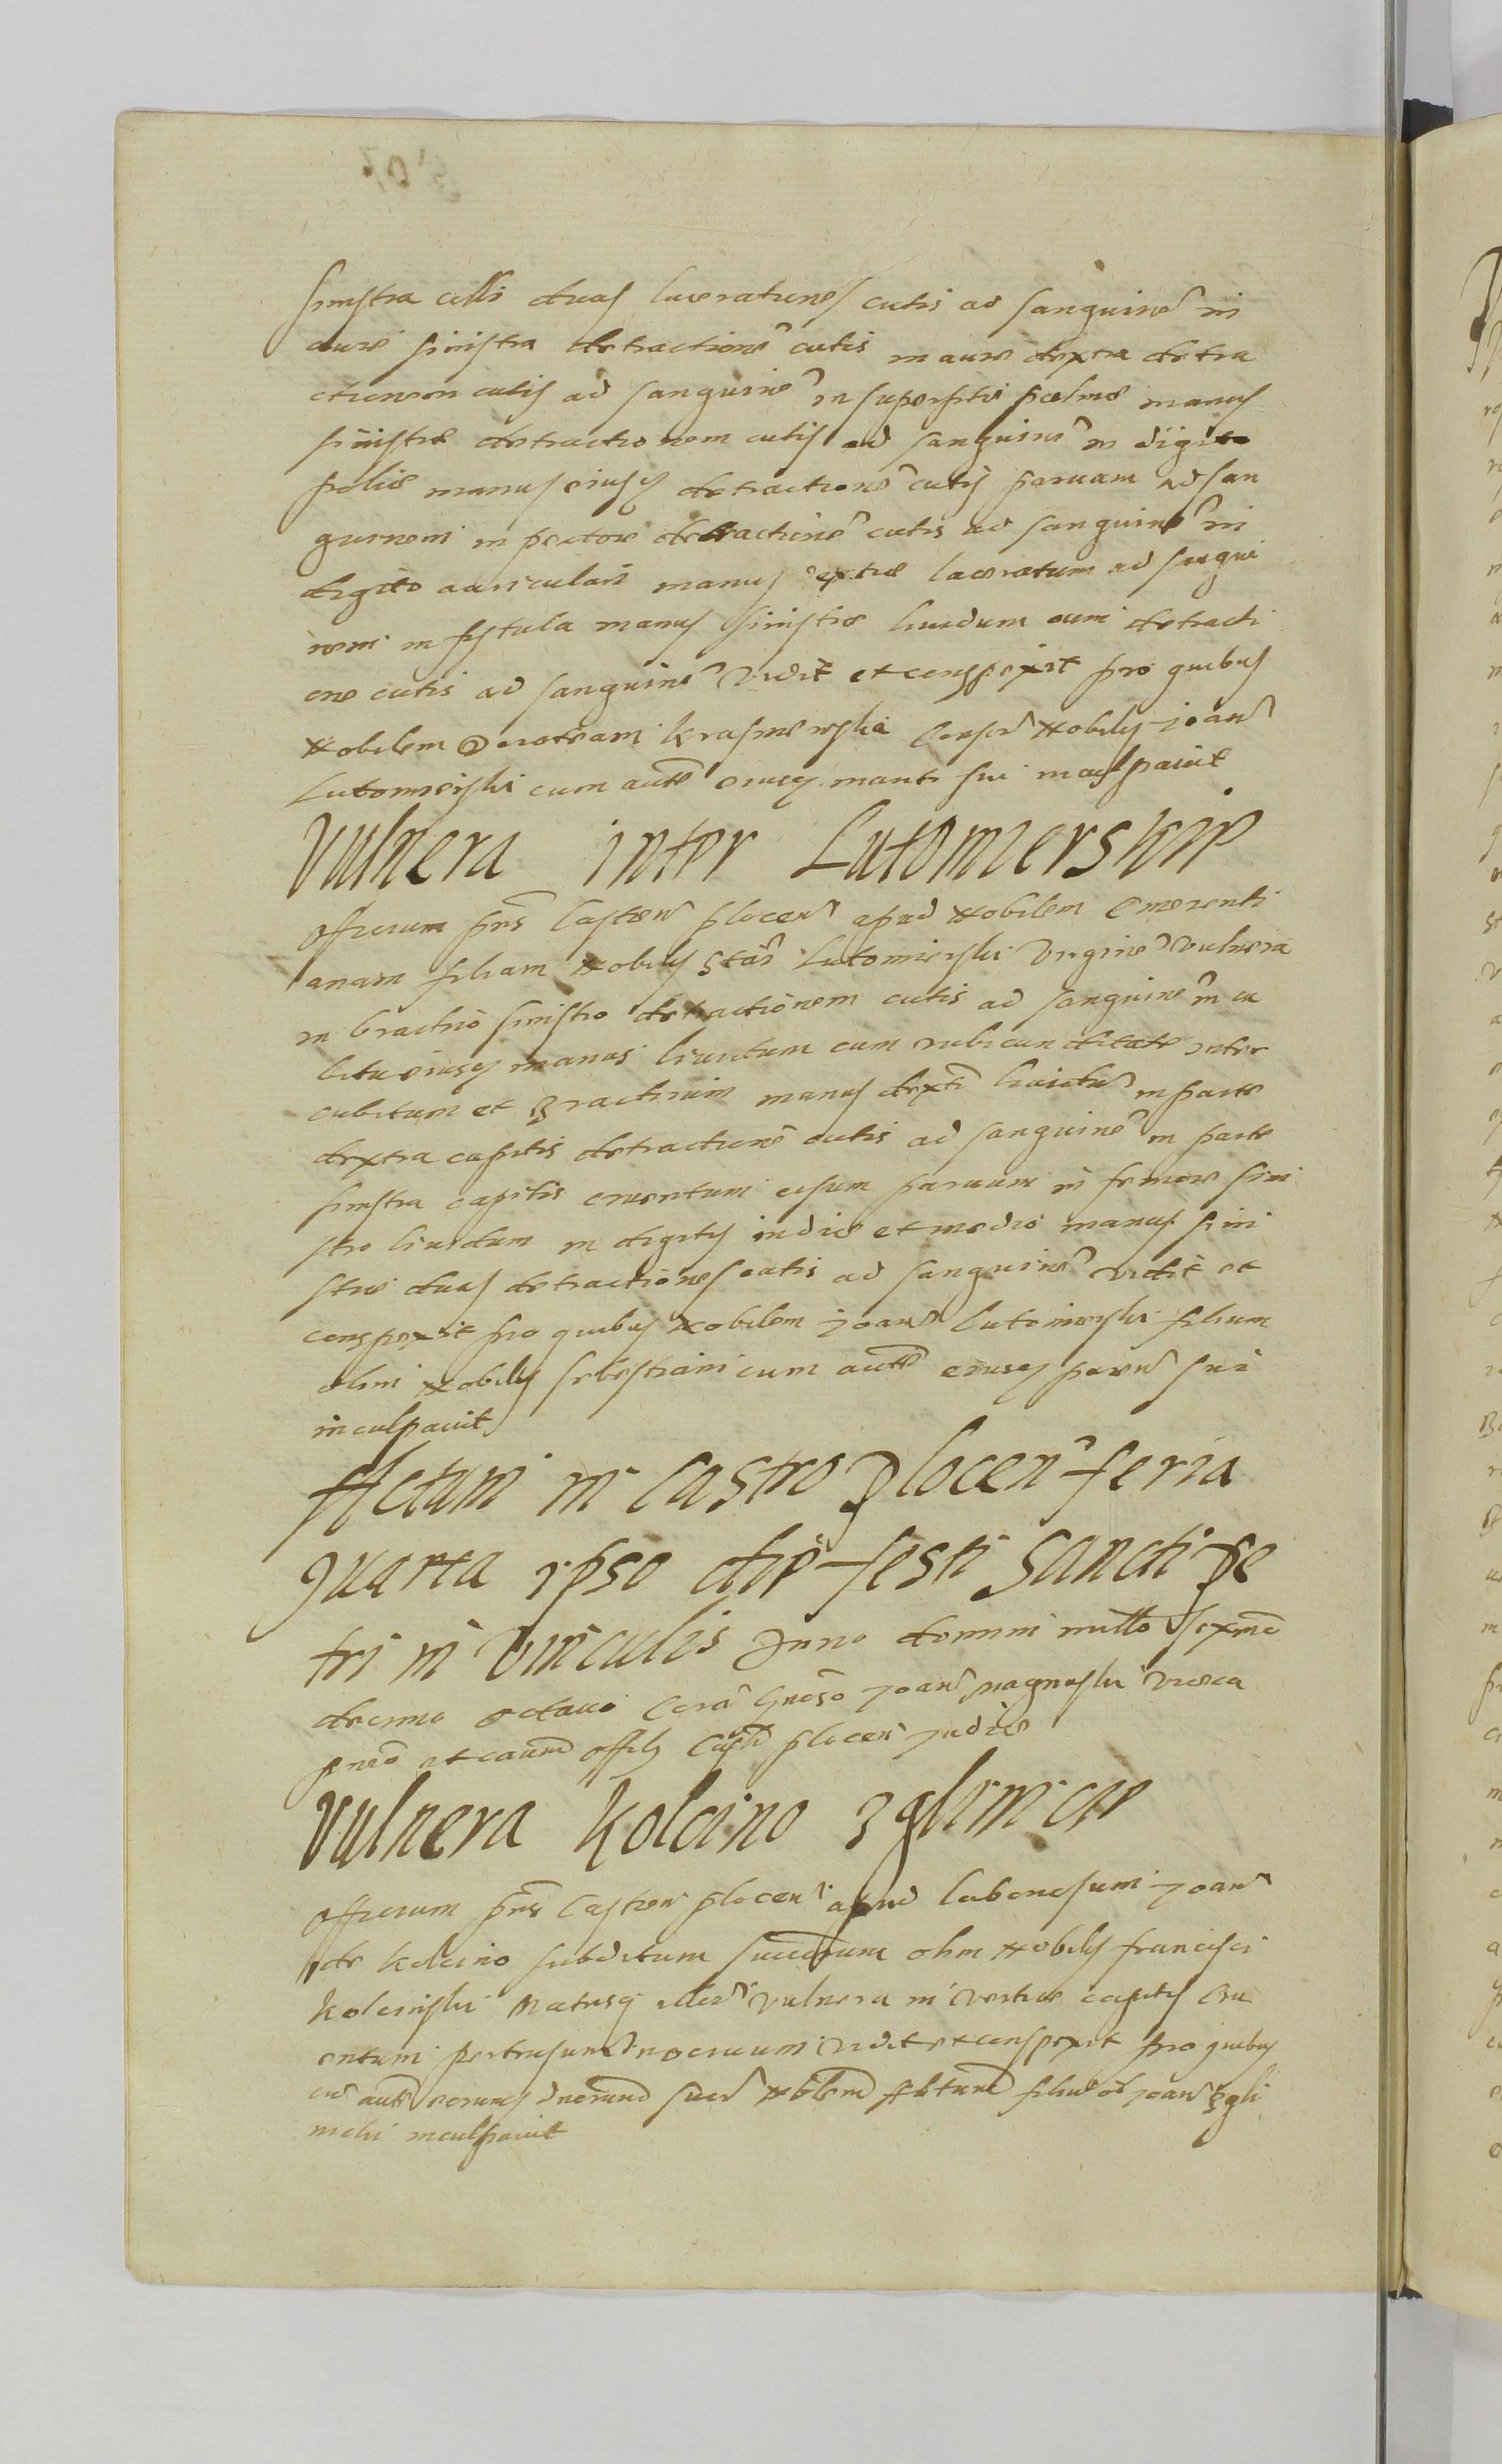 sinistra colli duas lacerationes cutis ad sanguine in
aure sinistra detractione cutis in aure dextra detra
ctionem cutis ad sanguine in superficie palme manus
sinistre detractionem cutis ad sanguine in digito
police manus eiusq detractione cutis parvam ad san
guinem in pectore detractione cutis ad sanguine in
digito auriculari manus dextre laceratum ad sangui
nem in fistula manus sinistre liuidum cum detracti
one cutis ad sanguine vidit et conspexit pro quibus
Nobilem Dorotheam Consor Nobilis Joan
Lutomierski cum aucte eiusq mariti sui inculpauit
Vulnera inter Lutomierskie
Officium pns Castren plocen apud Nobilem Emerenti
anam filiam Nobilis Stan Lutomierski virgine vulnera
in brachio sinistro detractionem cutis ad sanguine in cu
bitu eiusq manus liuidum cum rubicunditate inter
cubitum et Brachium manus dextre liuidu in parte
dextra capitis detractione cutis ad sanguine in parte
sinistra capitis cruentum cesum paruum in femore sini
stro liuidum in digitis indice et medio manus sini
stre duas detractiones cutis ad sanguine vidit et
conspexit pro quibus Nobilem Joan Lutomierski filium
olim Nobilis Sebestiani cum aucte eiusq paren sui
inculpauit
Actum in Castro Plocen feria
quarta ipso die festi Sancti Pe
tri in Vinculis Anno domini millo sexme
decimo octauo Cora Gneso Joan Nagurski vice ca
pneo et caume offy Capli plocen Judice
Vulnera Kolcino Zglinicie
Officium pns Castren plocen apud laboriosum Joan
de Kolcino subditum olim Nobilis francisci
Kolcinski Natusq vulnera in vertice capitis Cru
entum pertusum vidit et conspexit pro quibus
cu aucte eorumq dnorum suor Nobilem filiu ol Joan Zgli
nicki inculpauit